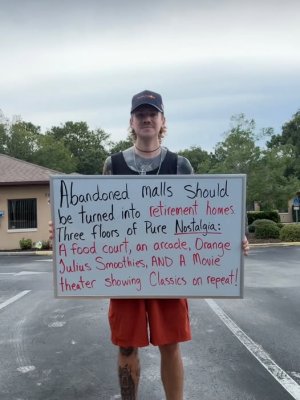 Abandoned malls should
be turned into retirement homes.
Three floors of Pure Nostalgia:
A food court, an arcade, Orange
Julius Smoothies, AND A Movie
theater showing Classics on repeat!